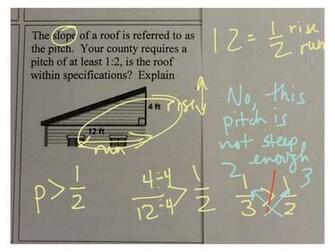 The slope of a roof is referred to as
the pitch. Your county requires a
pitch of at least 1:2, is the roof
within specifications? Explain
1:2 = 1/2 rise
run
4 ft
rise
12 ft
run
No, this
pitch is
not steep
enough.
p > 1/2
4÷4/12÷4 > 1/2
2 3
1/3 > 1/2